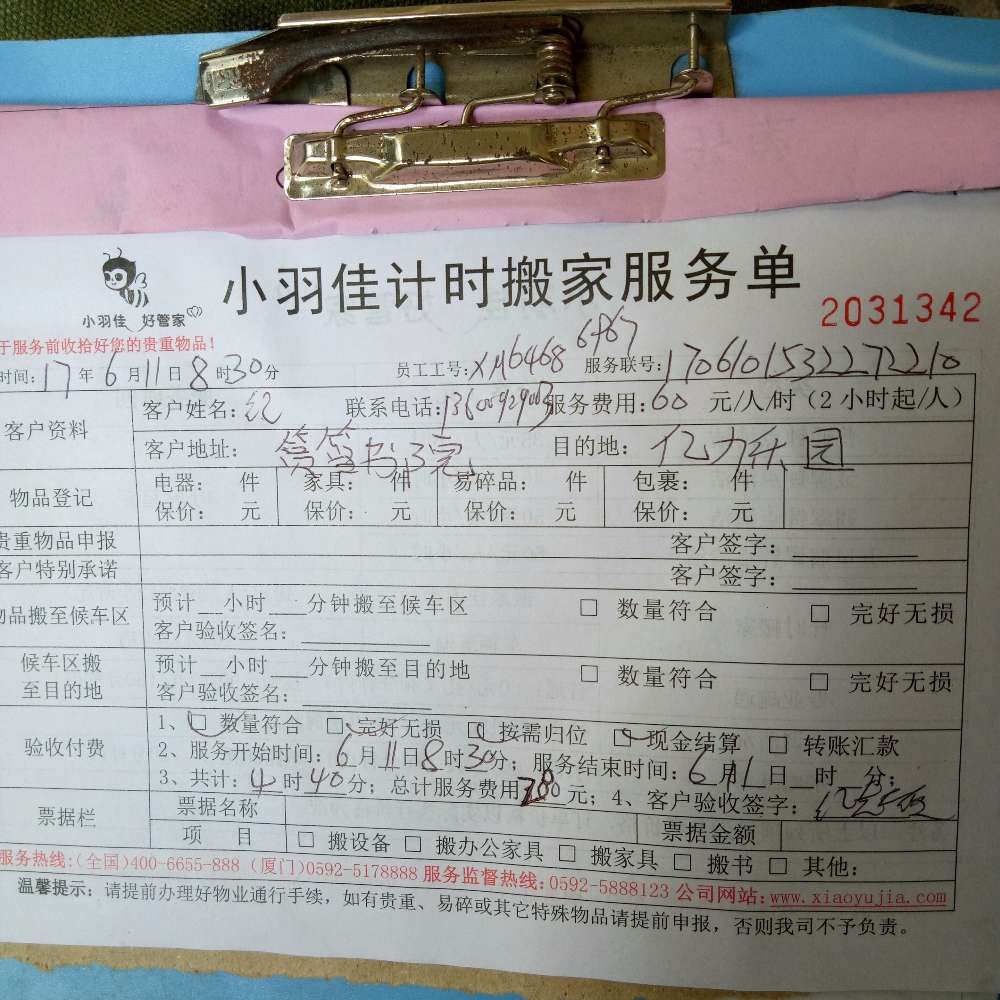 小羽佳 好管家
小羽佳计时搬家服务单
2031342
于服务前收拾好您的贵重物品!
时间:17年6月11日8时30分 员工工号:XM6468 6967 服务联号:1706101532272210
客户资料 客户姓名: 联系电话: 服务费用:60 元/人/时(2小时起/人)
客户地址: 筼筜书院 目的地: 亿力乐园
物品登记 电器: 件 家具: 件 易碎品: 件 包裹: 件
保价: 元 保价: 元 保价: 元 保价: 元
贵重物品申报 客户签字:
客户特别承诺 客户签字:
物品搬至候车区 预计__小时___分钟搬至候车区 □ 数量符合 □ 完好无损
客户验收签名:
候车区搬至目的地 预计__小时___分钟搬至目的地 □ 数量符合 □ 完好无损
客户验收签名:
验收付费 1、□ 数量符合 □ 完好无损 □ 按需归位 □ 现金结算 □ 转账汇款
2、服务开始时间:6月11日8时30分;服务结束时间:6月11日__时__分;
3、共计:4时40分;总计服务费用280元;4、客户验收签字:
票据栏 票据名称 票据金额
项 目 □ 搬设备 □ 搬办公家具 □ 搬家具 □ 搬书 □ 其他:
服务热线:(全国)400-6655-888 (厦门)0592-5178888 服务监督热线:0592-5888123 公司网站:www.xiaoyujia.com
温馨提示:请提前办理好物业通行手续,如有贵重、易碎或其它特殊物品请提前申报,否则我司不予负责。